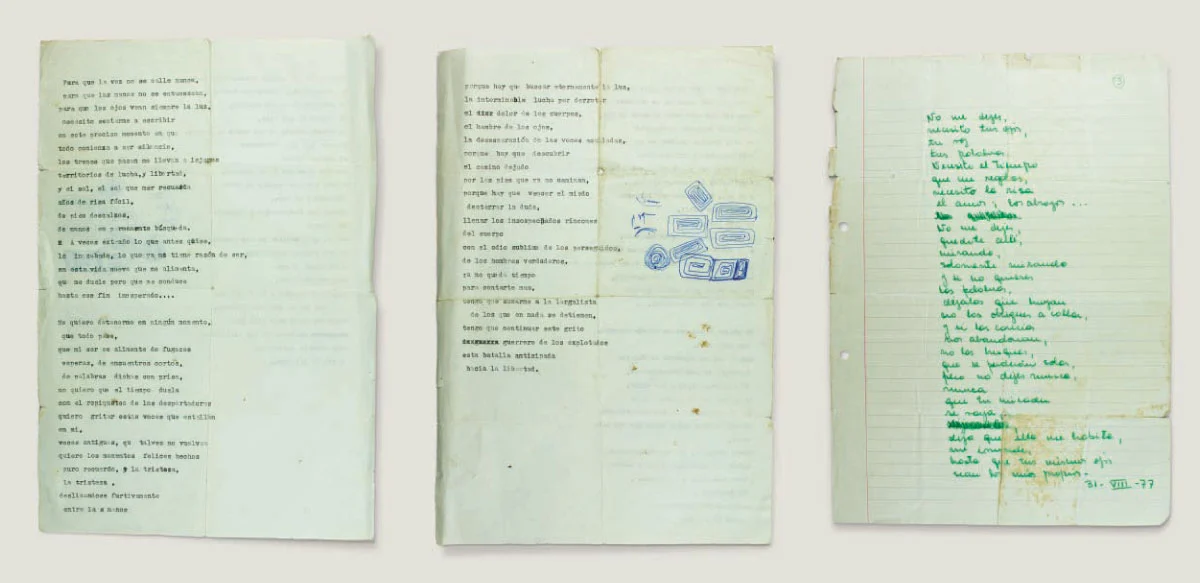 Para que la voz no se calle nunca,
para que las manos no se entumezcan,
para que los ojos vean siempre la luz,
necesito sentarme a escribir
en este preciso momento en que
todo comienza a ser silencio,
los trenes que pasan me llevan a lejanos
territorios de lucha, y libertad,
y el sol, el sol que me recuerda
días de risa fácil,
de pies descalzos,
de manos en permanente búsqueda.
A veces extraño lo que antes quise,
lo que ya no tiene razón de ser,
en esta vida nueva que me alimenta,
que me duele pero que me conduce
hasta ese fin inesperado....
No quiero detenerme en ningún momento,
que todo pase,
que mi ser se alimente de fugaces
esperas, de encuentros cortos,
de palabras dichas con prisa,
no quiero que el tiempo duela
con el repiqueteo de los despertadores
quiero gritar estas voces que estallan
en mi,
voces antiguas, que talvez no vuelvan
quiero los momentos felices hechos
puro recuerdo, y la tristeza,
la tristeza,
deslizandose furtivamente
entre la noche
porque hay que buscar eternamente la luz,
la interminable lucha por derrotar
el dolor de los cuerpos,
el hambre de los ojos,
la desesperación de las voces
porque hay que descubrir
el camino dejado
por los pies que ya no caminan,
porque hay que vencer el miedo
desterrar la duda,
llenar los insospechados rincones
del cuerpo
con el odio sublime de los perseguidos,
de los hombres verdaderos,
ya no queda tiempo
para contarte mas,
tengo que sumarme a la larga lista
de los que en nada se detienen,
tengo que continuar este grito
guerrero de los explotados
esta batalla anticipada
hacia la libertad.
No me dejes,
necesito tus ojos,
tu voz
tus palabras
Necesito el tiempo
que me regalas,
necesito la risa
el amor y los abrazos...
No me dejes,
quedate allí,
mirando,
solamente mirando
Y si no quieres
las palabras,
déjalas que huyan
no las obligues a callar,
Y si las caricias
nos abandonan,
no las busques,
que se perderán solas,
pero no dejes nunca,
nunca
que tu mirada
se vaya,
deja que ella me habite,
me inunde,
hasta que tus mismos ojos
sean los mios propios.
31-VIII-77